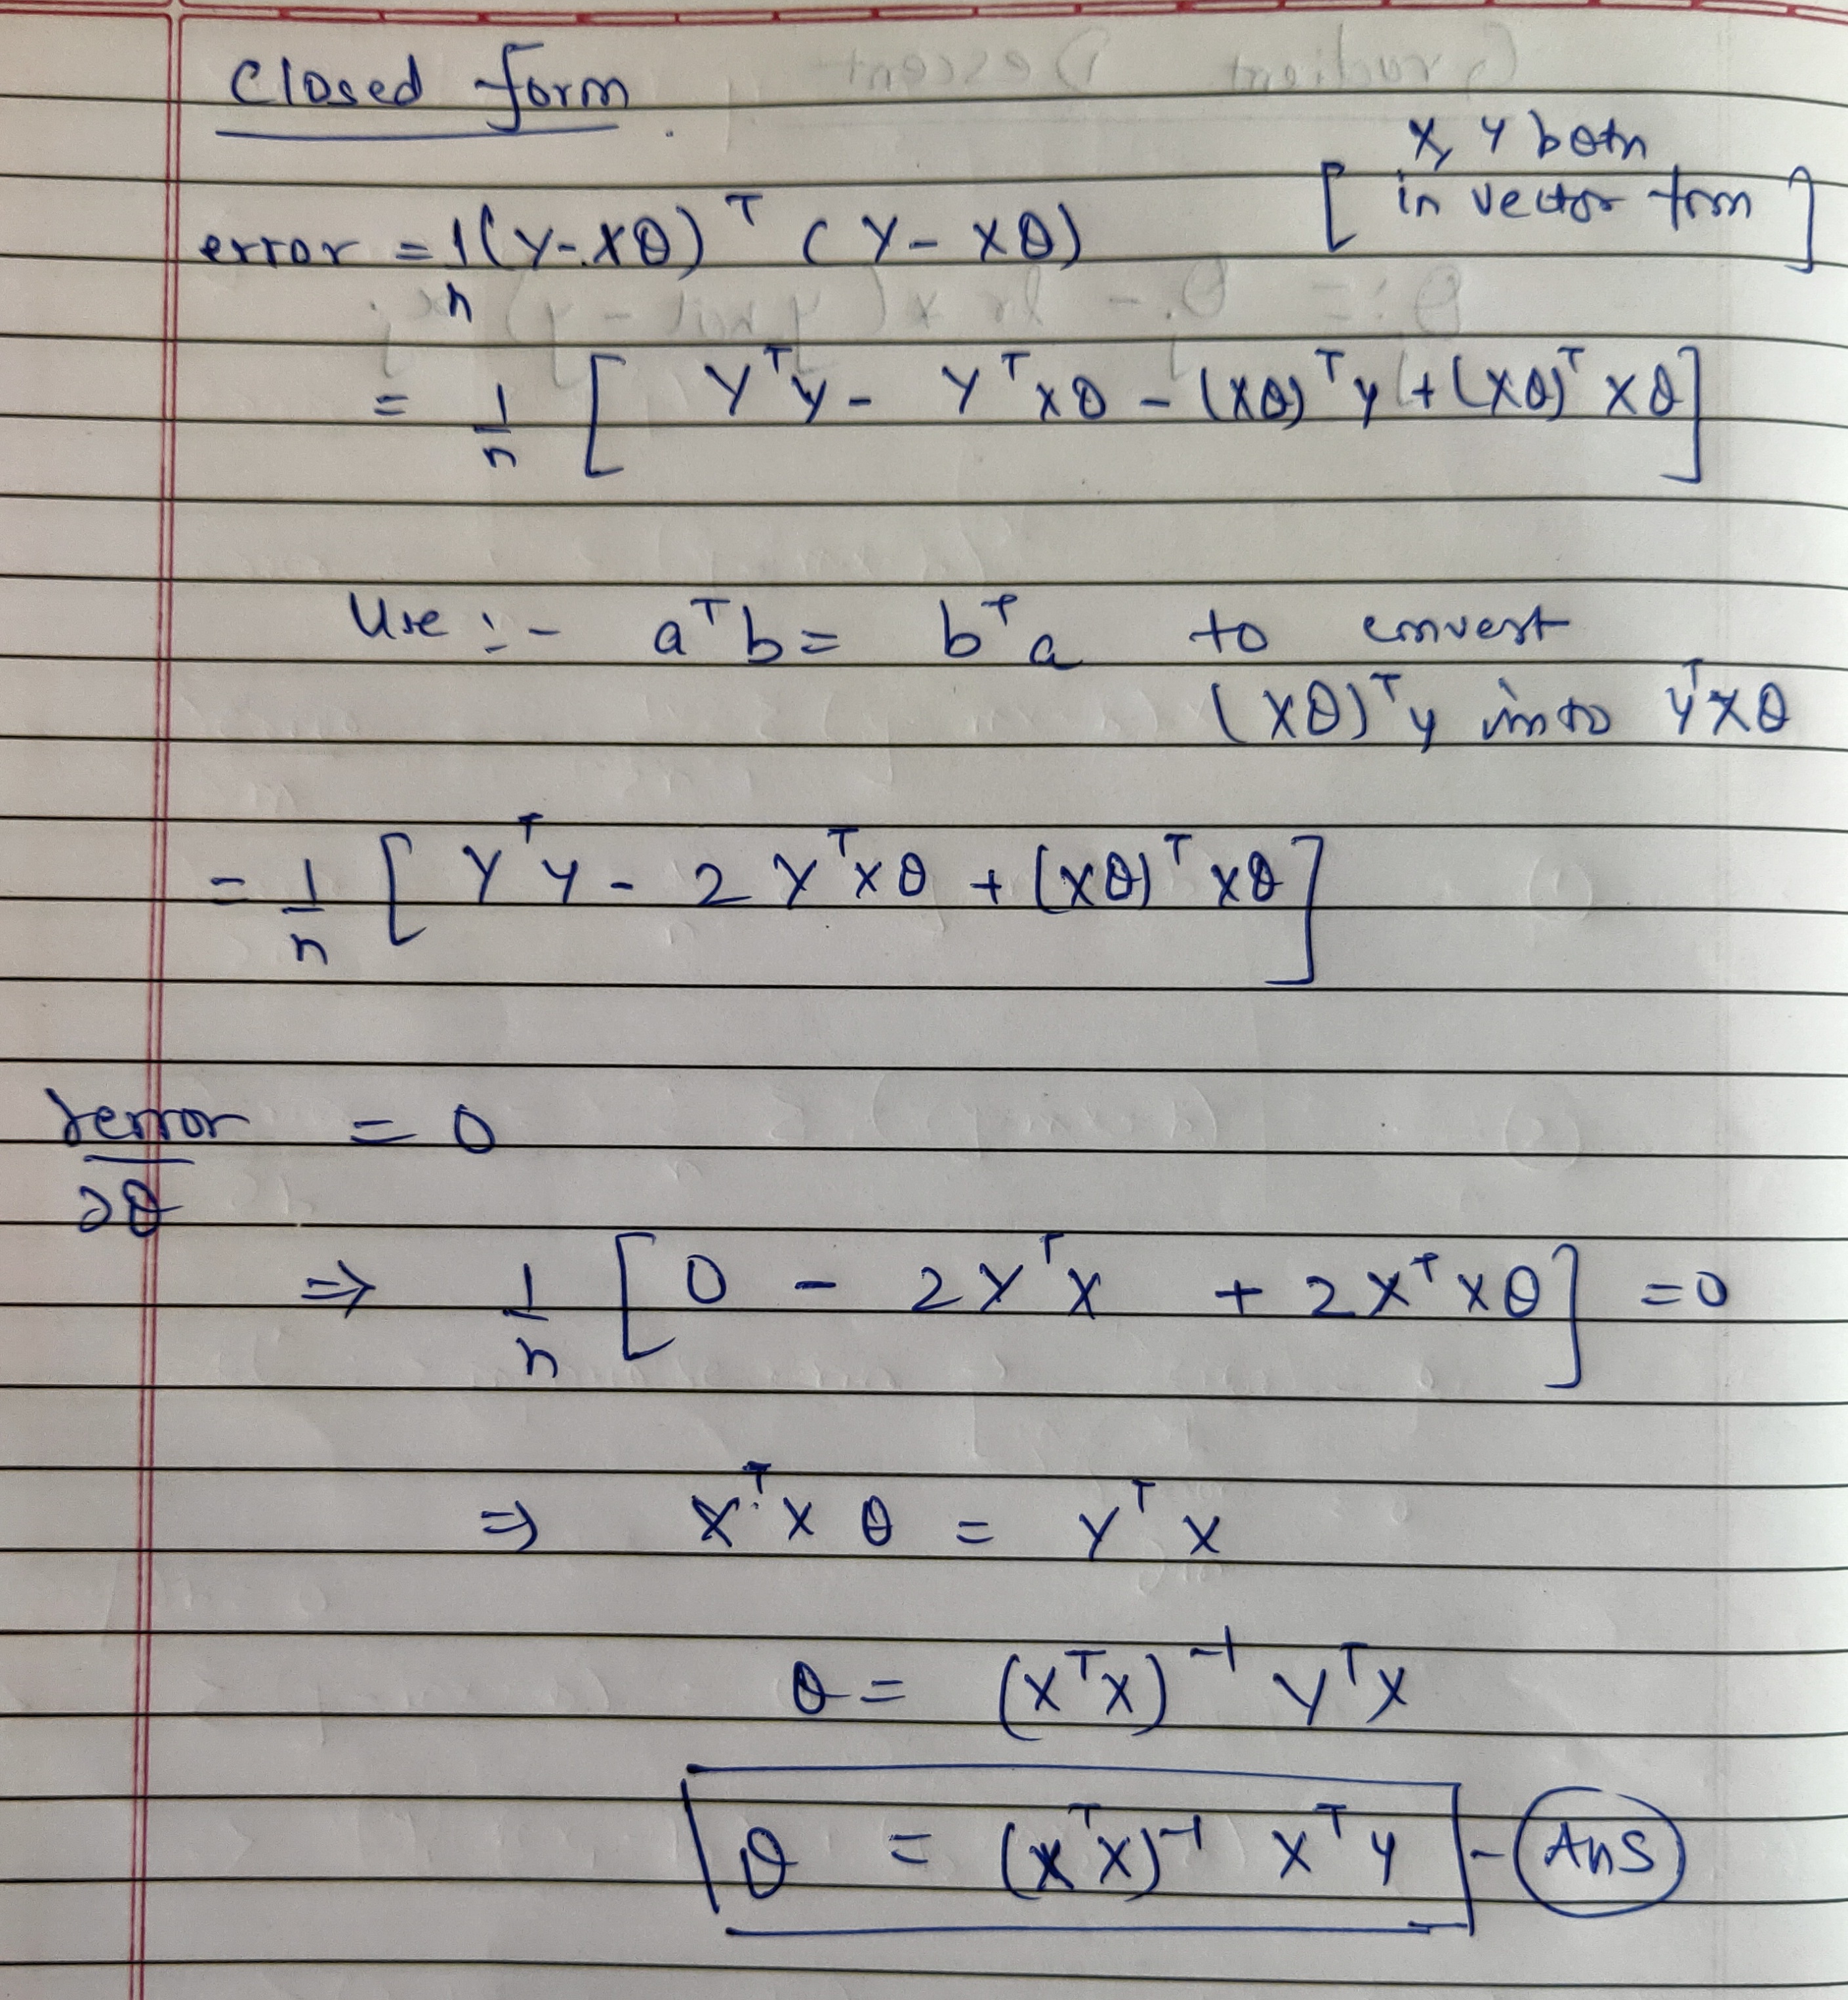 Closed form
[ X, Y both in vector form ]
error = 1/n (Y-Xθ)ᵀ (Y-Xθ)
= 1/n [ YᵀY - YᵀXθ - (Xθ)ᵀY + (Xθ)ᵀXθ ]
Use :- aᵀb = bᵀa to convert
(Xθ)ᵀY into YᵀXθ
= 1/n [ YᵀY - 2YᵀXθ + (Xθ)ᵀXθ ]
∂error/∂θ = 0
⇒ 1/n [ 0 - 2YᵀX + 2XᵀXθ ] = 0
⇒ XᵀXθ = YᵀX
θ = (XᵀX)⁻¹ YᵀX
θ = (XᵀX)⁻¹ XᵀY - Ans